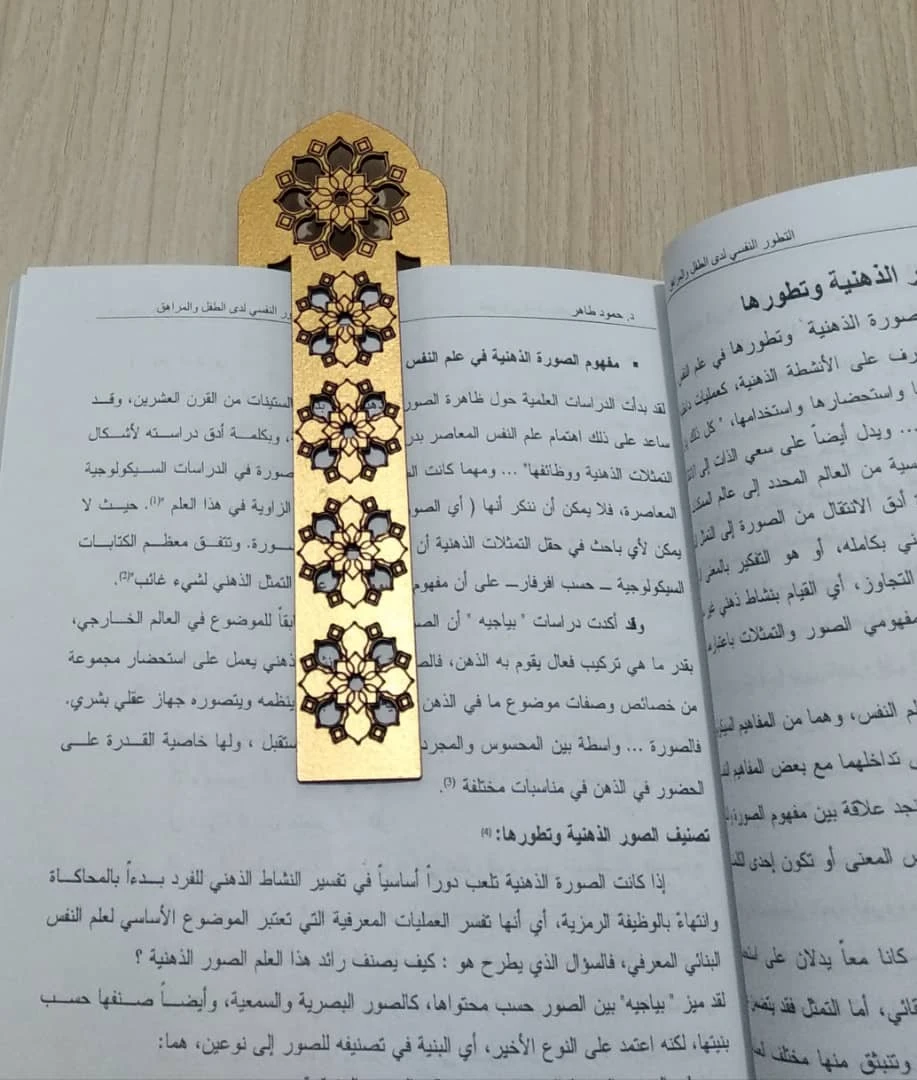 د. حمود طاهر
ور النفسي لدى الطفل والمراهق
▪ مفهوم الصورة الذهنية في علم النفس
لقد بدأت الدراسات العلمية حول ظاهرة الصور الستينات من القرن العشرين، وقد
ساعد على ذلك اهتمام علم النفس المعاصر بدر ، وبكلمة أدق دراسته لأشكال
التمثلات الذهنية ووظائفها" ... ومهما كانت صورة في الدراسات السيكولوجية
المعاصرة، فلا يمكن أن ننكر أنها ( أي الصور الزاوية في هذا العلم "(1). حيث لا
يمكن لأي باحث في حقل التمثلات الذهنية أن سورة. وتتفق معظم الكتابات
السيكولوجية – حسب افرفار– على أن مفهوم التمثل الذهني لشيء غائب"(2).
وقد أكدت دراسات " بياجيه " أن الص بقاً للموضوع في العالم الخارجي،
بقدر ما هي تركيب فعال يقوم به الذهن، فالص ذهني يعمل على استحضار مجموعة
من خصائص وصفات موضوع ما في الذهن ينظمه ويتصوره جهاز عقلي بشري.
فالصورة ... واسطة بين المحسوس والمجرد ستقبل ، ولها خاصية القدرة على
الحضور في الذهن في مناسبات مختلفة (3).
تصنيف الصور الذهنية وتطورها:(4)
إذا كانت الصورة الذهنية تلعب دوراً أساسياً في تفسير النشاط الذهني للفرد بدءاً بالمحاكاة
وانتهاءً بالوظيفة الرمزية، أي أنها تفسر العمليات المعرفية التي تعتبر الموضوع الأساسي لعلم النفس
البنائي المعرفي، فالسؤال الذي يطرح هو : كيف يصنف رائد هذا العلم الصور الذهنية ؟
لقد ميز " بياجيه" بين الصور حسب محتواها، كالصور البصرية والسمعية، وأيضاً صنفها حسب
بنيتها، لكنه اعتمد على النوع الأخير، أي البنية في تصنيفه للصور إلى نوعين، هما:
التطور النفسي لدى الطفل والمراهق
الذهنية وتطورها
صورة الذهنية وتطورها في علم
رف على الأنشطة الذهنية، كعمليات
واستحضارها واستخدامها، " كل ذلك
... ويدل أيضاً على سعي الذات إلى
سية من العالم المحدد إلى عالم
أدق الانتقال من الصورة إلى
ني بكامله، أو هو التفكير بالمعنى
التجاوز، أي القيام بنشاط ذهني
مفهومي الصور والتمثلات
لم النفس، وهما من المفاهيم
تداخلهما مع بعض المفاهيم
جد علاقة بين مفهوم الصورة
س المعنى أو تكون إحدى
كانا معاً يدلان على
ائي، أما التمثل فقد
وتنبثق منها مختلف